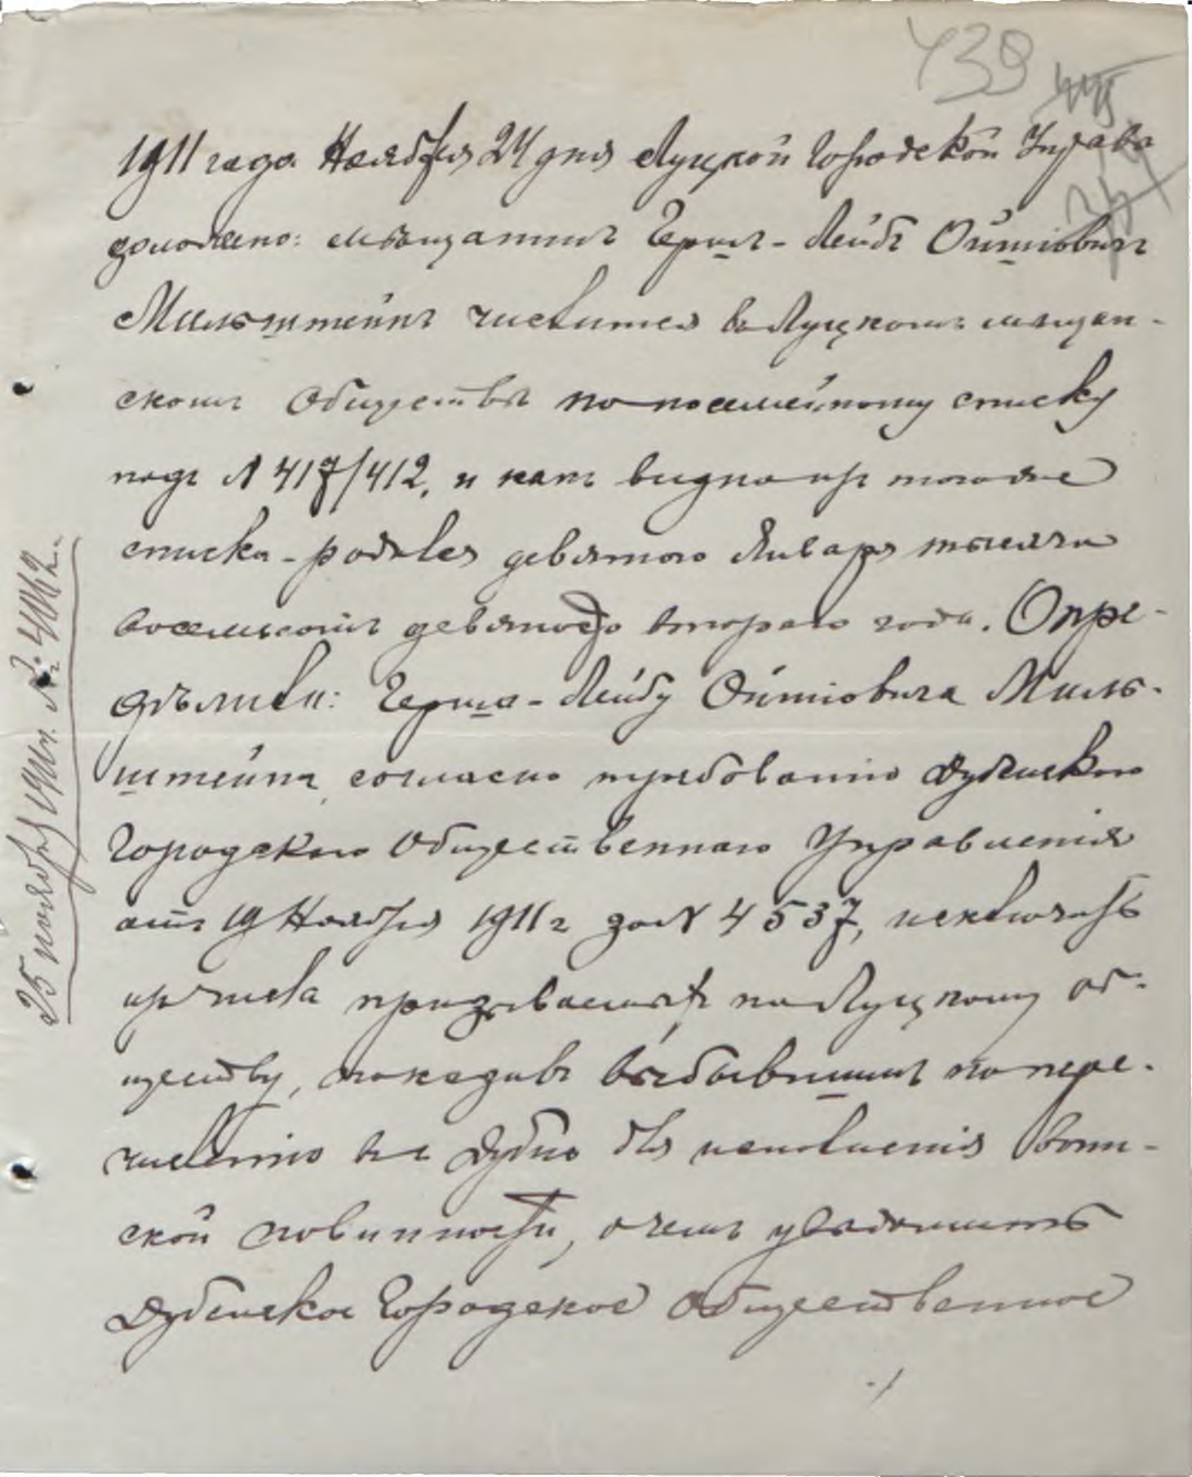 439
1911 года Ноября 24 дня Луцкой Городской Управѣ
доложено: мѣщанинъ Герш- Лейбъ Ойтіовичъ
Мильштейнъ числится въ Луцкомъ мѣщан-
скомъ Обществѣ по посемейному списку
подъ № 417/412, и какъ видно изъ того же
списка - родился девятого Января тысяча
восемьсотъ девяносто второго года. Опре-
дѣлили: Герша - Лейбу Ойтіовича Миль-
штейнъ, согласно требованію Дубенского
Городского Общественнаго Управленія
отъ 19 Ноября 1911 г за № 4537, исключить
изъ числа призываемыхъ по Луцкому об-
ществу, показавъ выбывшимъ по пере-
численію въ г Дубно для исполненія воин-
ской повинности, о чемъ увѣдомить
Дубенское Городское Общественное
./.
25 ноября 1911 г. № 4062.